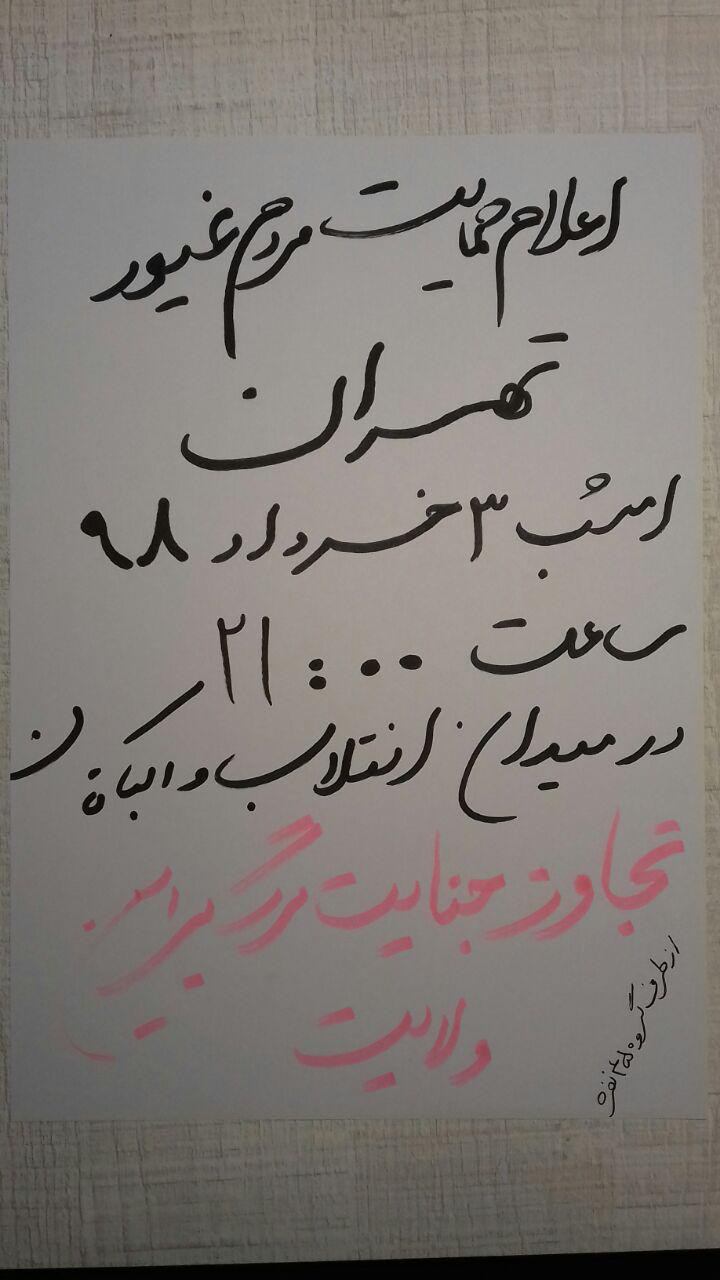 اعلام حمایت مردم غیور
تهران
امشب ۳ خرداد ۹۸
ساعت ۲۱:۰۰
در میدان انقلاب و اکباتان
تجاوز جنایت مرگ بر این
ولایت
از طرف گروه نفره